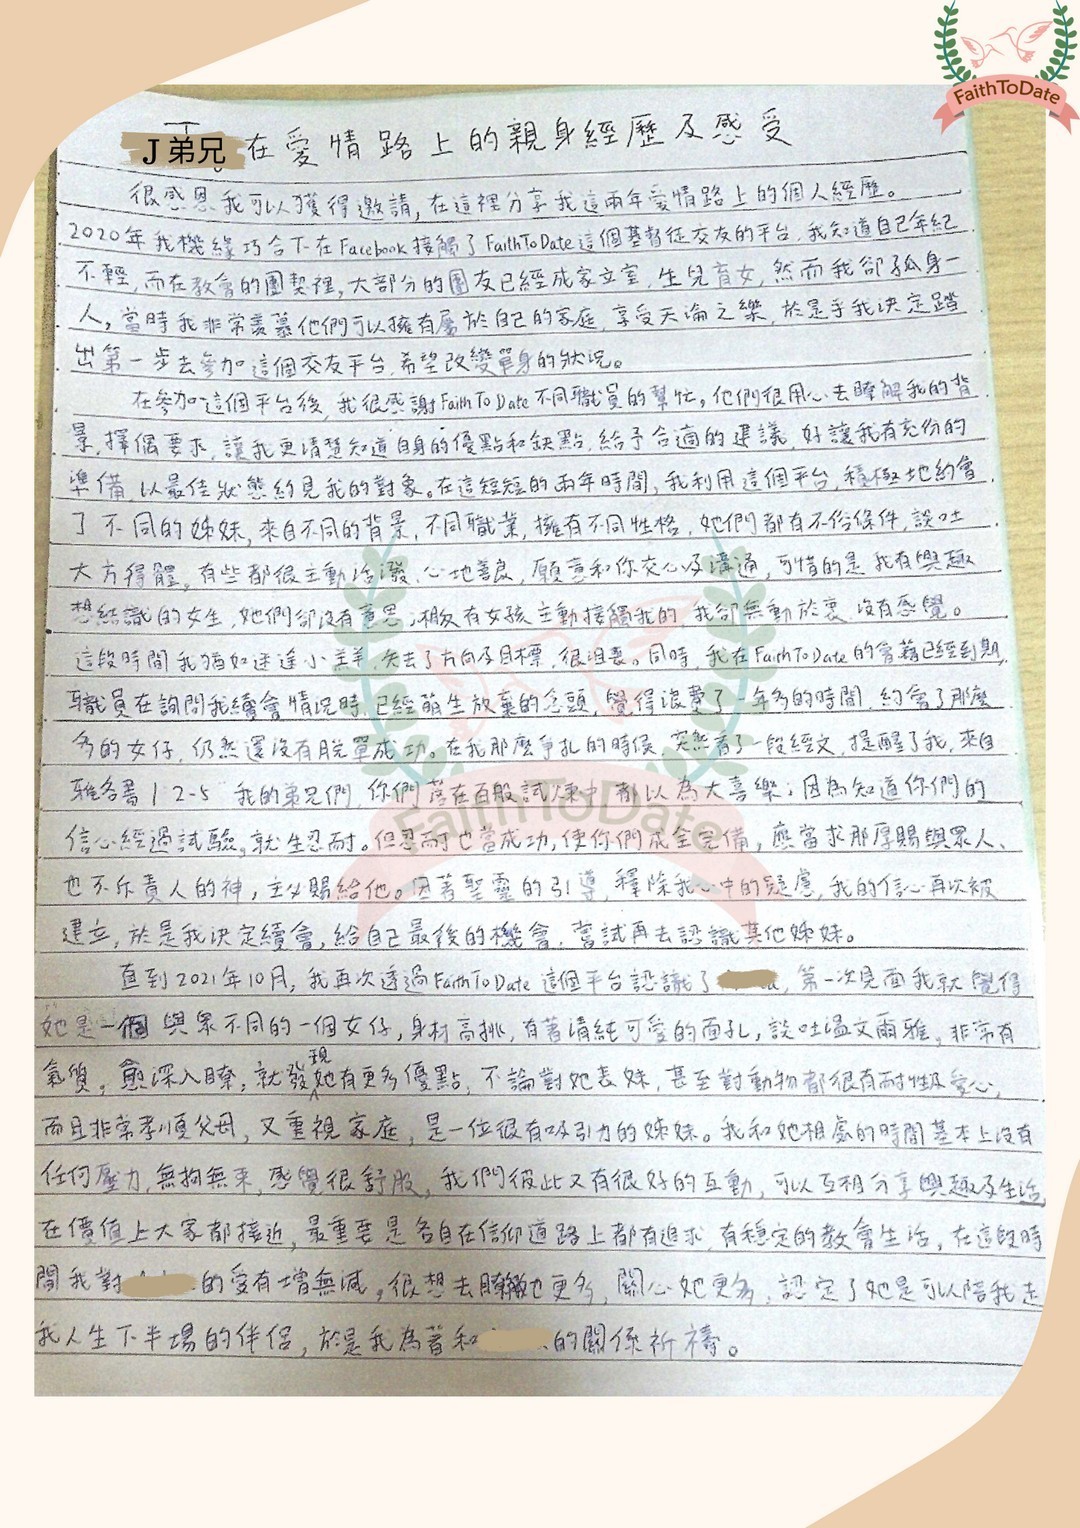 FaithToDate
J 弟兄 在愛情路上的親身經歷及感受
很感恩我可以獲得邀請,在這裡分享我這兩年愛情路上的個人經歷。
2020年我機緣巧合下在Facebook接觸了FaithToDate這個基督徒交友的平台,我知道自己年紀
不輕,而在教會的團契裡,大部分的團友已經成家立室,生兒育女,然而我卻孤身一
人,當時我非常羨慕他們可以擁有屬於自己的家庭,享受天論之樂,於是乎我決定踏
出第一步去參加這個交友平台,希望改變單身的狀況。
在參加這個平台後,我很感謝FaithToDate不同職員的幫忙,他們很用心去瞭解我的背
景,擇偶要求,讓我更清楚知道自身的優點和缺點,給予合適的建議,好讓我有充份的
準備,以最佳狀態約見我的對象。在這短短的兩年時間,我利用這個平台,積極地約會
了不同的姊妹,來自不同的背景,不同職業,擁有不同性格,她們都有不俗條件,談吐
大方得體,有些都很主動活潑,心地善良,願意和你交心及溝通,可惜的是我有興趣
想結識的女生,她們卻沒有意思;相反有女孩主動接觸我的,我卻無動於衷,沒有感覺。
這段時間我猶如迷途小羊羊,失去了方向及目標,很沮喪。同時,我在FaithToDate的會藉已經到期,
職員在詢問我續會情況時,已經萌生放棄的念頭,覺得浪費了一年多的時間,約會了那麼
多的女仔,仍然還沒有脫單成功。在我那麼爭扎的時候,突然看了一段經文,提醒了我,來自
雅各書1 2-5 我的弟兄們,你們落在百般試煉中都以為大喜樂;因為知道你們的
信心經過試驗,就生忍耐。但忍耐也當成功,使你們成全完備,應當求那厚賜與眾人、
也不斥責人的神,主必賜給他。因著聖靈的引導,釋除我心中的疑慮,我的信心再次被
建立,於是我決定續會,給自己最後的機會,嘗試再去認識其他姊妹。
直到2021年10月,我再次透過FaithToDate這個平台認識了,第一次見面我就覺得
她是一個與眾不同的一個女仔,身材高挑,有著清純可愛的面孔,談吐溫文爾雅,非常有
氣質,愈深入瞭,就發現她有更多優點,不論對她表妹,甚至對動物都很有耐性及愛心,
而且非常孝順父母,又重視家庭,是一位很有吸引力的姊妹。我和她相處的時間基本上沒有
任何壓力,無拘無束,感覺很舒服,我們彼此又有很好的互動,可以互相分享興趣及生活,
在價值上大家都接近,最重要是各自在信仰道路上都有追求,有穩定的教會生活,在這段時
間我對的愛有增無減,很想去瞭解她更多,關心她更多,認定了她是可以陪我走
我人生下半場的伴侶,於是我為著和的關係祈禱。
FaithToDate